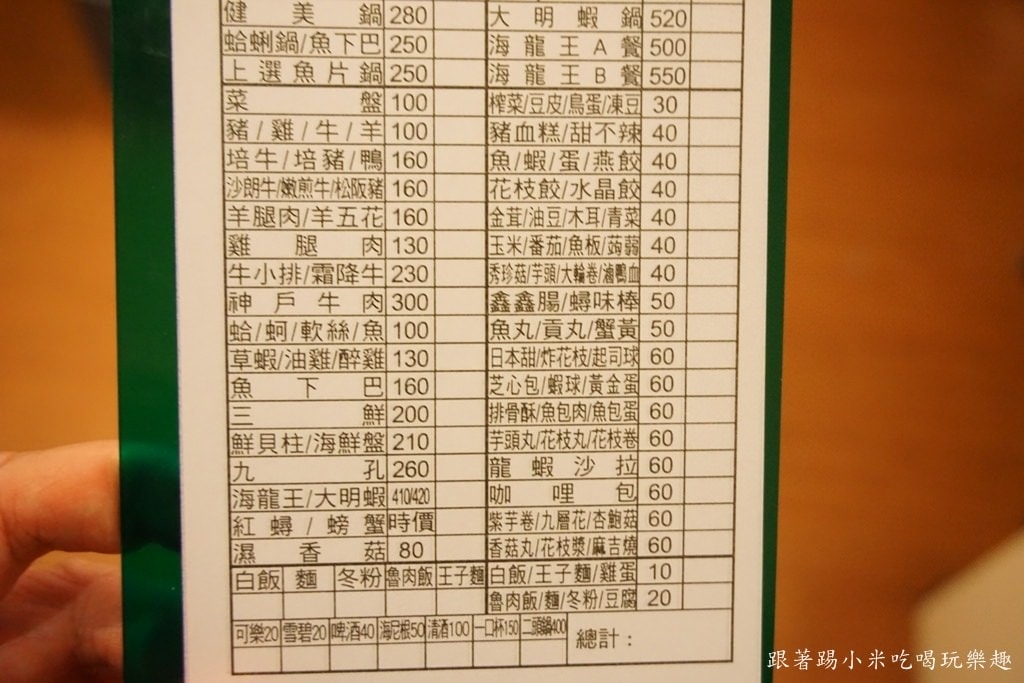 健美鍋 280 大明蝦鍋 520
蛤蜊鍋/魚下巴 250 海龍王A餐 500
上選魚片鍋 250 海龍王B餐 550
菜盤 100 榨菜/豆皮/鳥蛋/凍豆 30
豬/雞/牛/羊 100 豬血糕/甜不辣 40
培牛/培豬/鴨 160 魚/蝦/蛋/燕餃 40
沙朗牛/嫩煎牛/松阪豬 160 花枝餃/水晶餃 40
羊腿肉/羊五花 160 金茸/油豆/木耳/青菜 40
雞腿肉 130 玉米/番茄/魚板/蒟蒻 40
牛小排/霜降牛 230 秀珍菇/芋頭/大輪卷/滷鴨血 40
神戶牛肉 300 鑫鑫腸/蟳味棒 50
蛤/蚵/軟絲/魚 100 魚丸/貢丸/蟹黃 50
草蝦/油雞/醉雞 130 日本甜/炸花枝/起司球 60
魚下巴 160 芝心包/蝦球/黃金蛋 60
三鮮 200 排骨酥/魚包肉/魚包蛋 60
鮮貝柱/海鮮盤 210 芋頭丸/花枝丸/花枝卷 60
九孔 260 龍蝦沙拉 60
海龍王/大明蝦 410/420 咖哩包 60
紅蟳/螃蟹 時價 紫芋卷/九層花/杏鮑菇 60
濕香菇 80 香菇丸/花枝漿/麻吉燒 60
白飯 麵 冬粉 魯肉飯 王子麵 白飯/王子麵/雞蛋 10
魯肉飯/麵/冬粉/豆腐 20
可樂20 雪碧20 啤酒40 海尼根50 清酒100 一口杯150 二頭鍋400 總計：
跟著踢小米吃喝玩樂趣